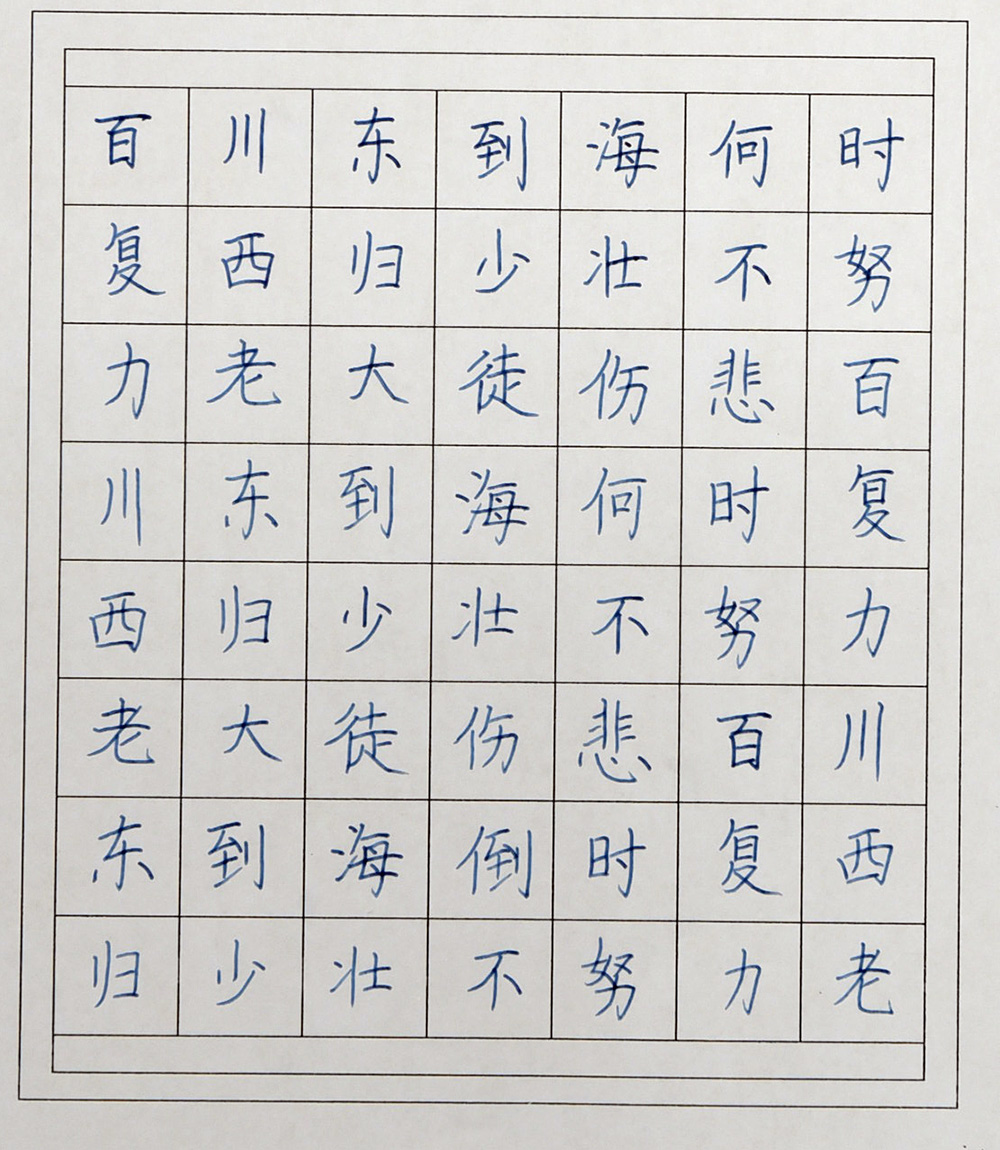 百川东到海何时
复西归少壮不努
力老大徒伤悲百
川东到海何时复
西归少壮不努力
老大徒伤悲百川
东到海倒时复西
归少壮不努力老